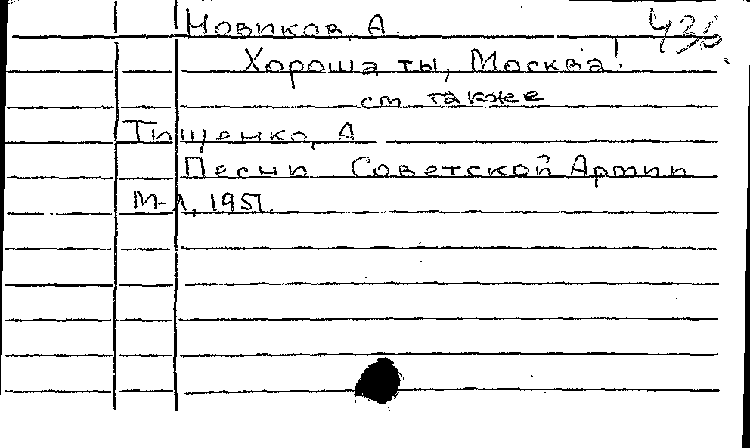 Новиков, А 
Хороша ты, Москва!
см также
Тищенко, А
Песни Советской Армии
М-Л, 1951.